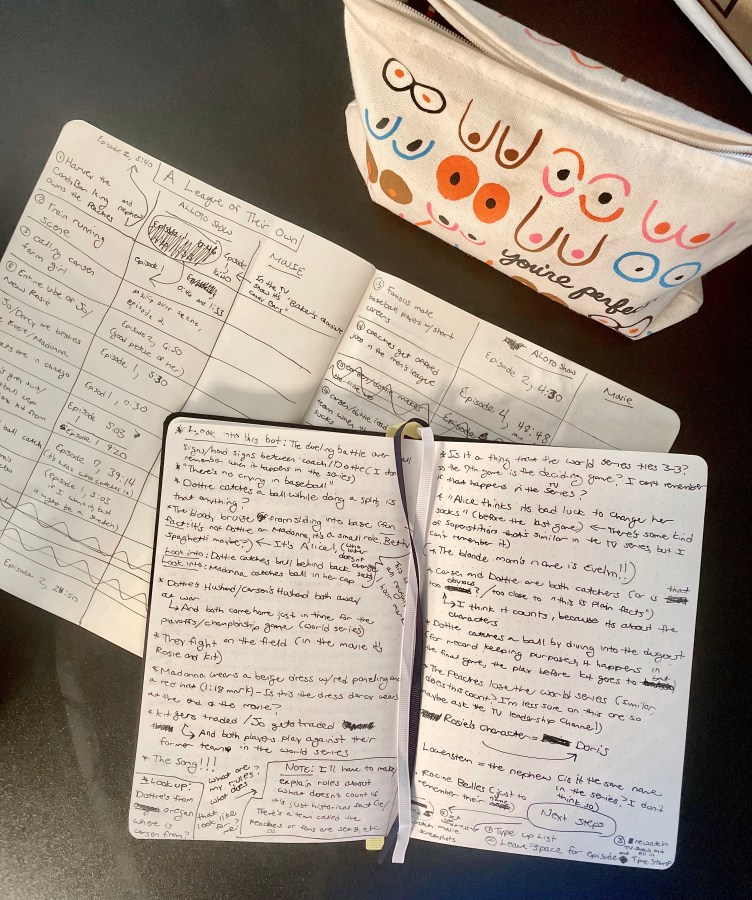 you're perfe
Episode 2, 5:40
A League of Their Own
① Harvey the
Candy Bar king and nephew
owns the Peaches
② Train running
scene
③ calling carson
farm girl
④ Entire vibe of Jo/
New Rosie
Jo/Darcy are besties
Rosie/Madonna
are in chicago
ball catch
ALOTO SHOW
Episode 1
0:40 and 1:55
Episode 2, 6:50
(good petite or me)
Episode 1, 5:30
Episode 1, 0:30
Episode 5:03
Episode 1 920
Episode 7, 39:14
(episode 1, 5:03
is when it
might be a stretch)
Episode 2, 28:50
MOVIE
In the TV "Baker's chocolate
show its candy bars"
Famous male
baseball players w/short
careers
coaches get offered
jobs in the men's league
ALOTO Show
Episode 2, 4:30
Episode 4, 48:48
Movie
* Look into this bot: The dueling battle over
signs/hand signs between coach/Dottie (I don't
remember when it happens in the series)
* "There's no crying in baseball"
* Dottie catches a ball while doing a splits, is
that anything?
* The bloody bruise from sliding into base (fun
fact: it's not Dottie or Madonna, it's a small role, Betty
spaghetti maybe?) ← It's Alice!, (who later doesn't change socks)
Look into: Dottie catches ball behind back
Look into: Madonna catches ball in her cap
* Dottie's Husband/Carson's Husband both away
at war
↳ And both come home just in time for the
playoffs/championship game (world series)
* They fight on the field (in the movie it's
Rosie and kit)
* Madonna wears a beige dress w/red paneling and
a red hat (1:18 mark) - Is this the dress darcy wears
at the end of the movie?
* kit gets traded / Jo gets traded
↳ And both players play against their
former team in the world series
* The song!!!
what are my rules?
what does that look like for me?
* Look up:
Dottie's from
oregon
where is
carson from?
NOTE: I'll have to make/
explain rules about
what doesn't count if
it's just historical fact (ie/
There's a team called the
Peaches or fans are sexist, etc
* Is it a thing that the world series ties 3-3?
so the 7th game is the deciding game? I can't remember
if that happens in the TV series?
* "Alice thinks its bad luck to change her
socks" (before the last game) ← There's some kind
of superstition that's similar in the TV series but I
can't remember it)
→ The blonde mom's name is Evelyn!!)
* Carson and Dottie are both catchers (or is that
too obvious? / too close to "this is plain facts")
↳ I think it counts, because its about the
characters
* Dottie catches a ball by diving into the dugout
(for record keeping purposes, it happens in
the final game, the play before kit goes to bat
* The Peaches lose the world series (similar,
does this count? I'm less sure on this one so
maybe ask the TV leadership Channel)
Rosie's character = Doris
Lowenstein = the nephew (is it the same name
in the series? I don't
think so)
* Racine Belles (just to
remember their name)
Next steps
① Type up list
② Leave space for episode Time Stamp
③ rewatch
TV show and
movie
screenshots